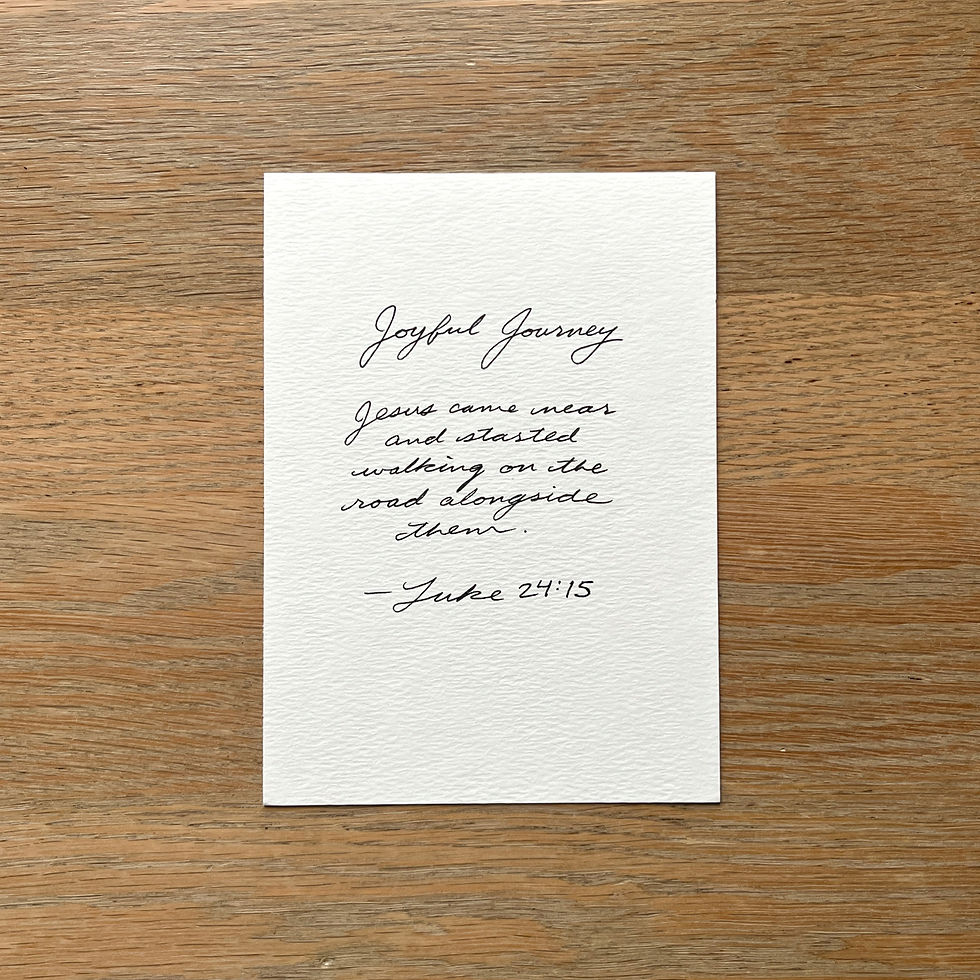 Joyful Journey
Jesus came near
and started
walking on the
road alongside
them.
– Luke 24:15